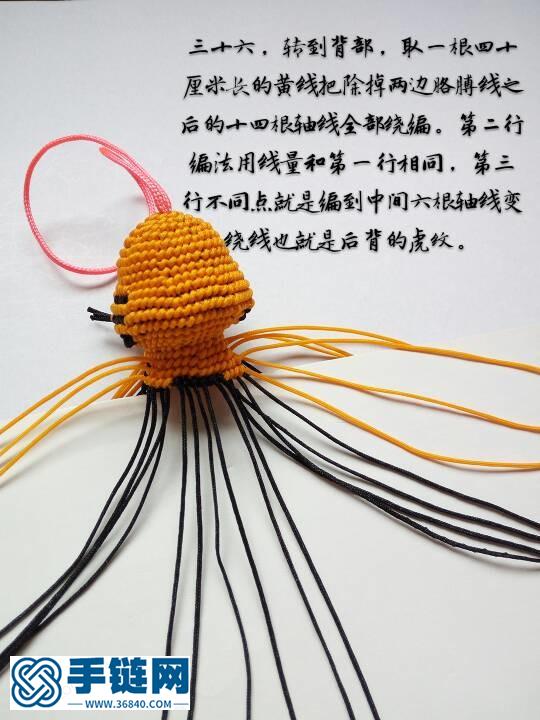 三十六，转到背部，取一根四十
厘米长的黄线把除掉两边胳膊线之
后的十四根轴线全部绕编。第二行
编法用线量和第一行相同，第三
行不同点就是编到中间六根轴线变
绕线也就是后背的虎纹。
手链网
WWW.36840.COM